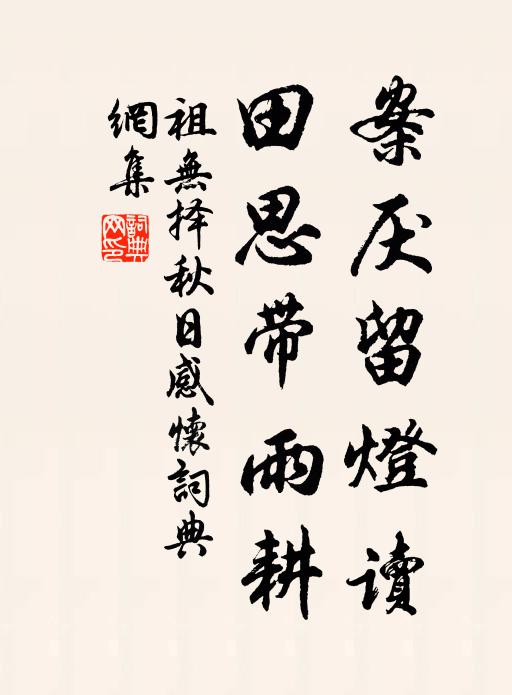 案厌留燈讀
田思带雨耕
祖無择秋日感懷詞典
網集
詞典
网印